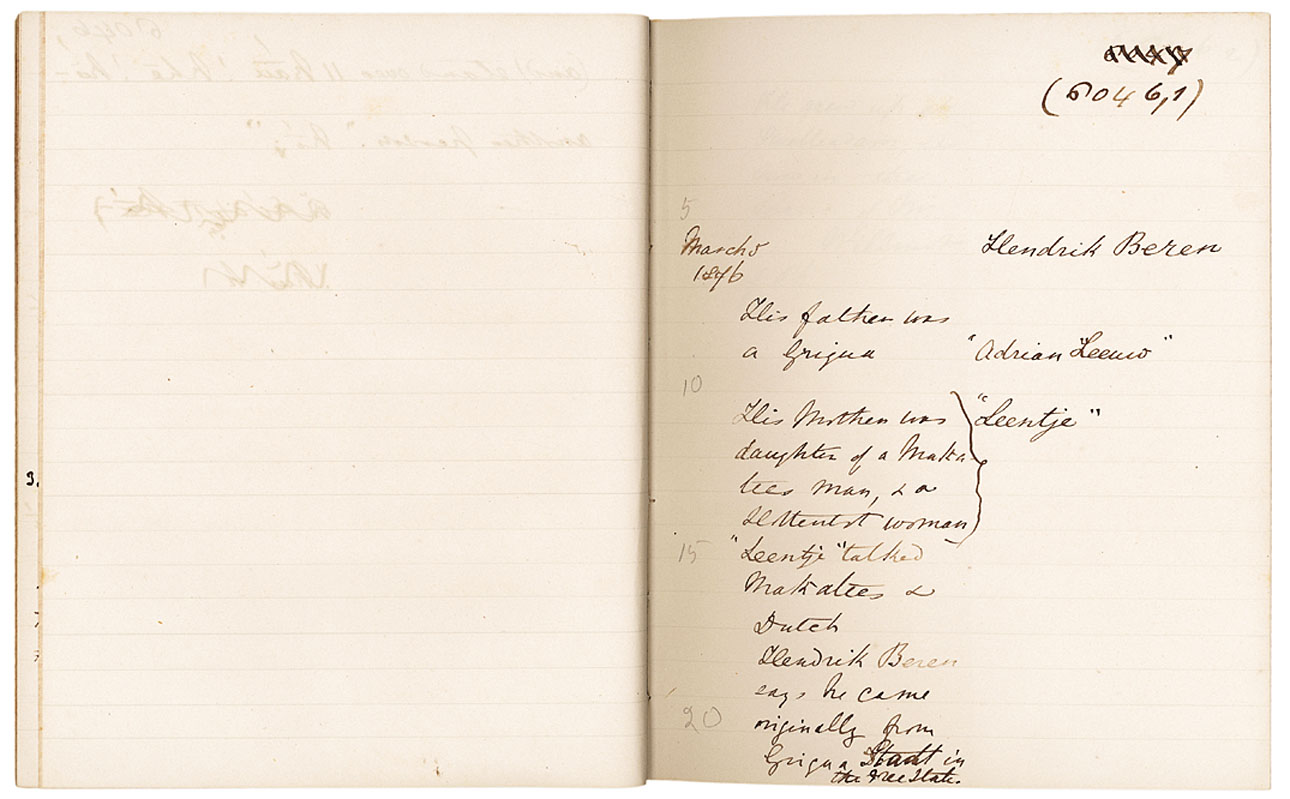 (6046,1)
5
March 5 Hendrik Beren
1896
His father was
a Griqua "Adrian Leeuw"
10
His Mother was "Leentje"
daughter of a Maka-
tees man, & a
Hottentot woman
15 "Leentje" talked
Makatees &
Dutch
Hendrik Beren
says he came
20 originally from
Griqua Stadt in
the Free State.